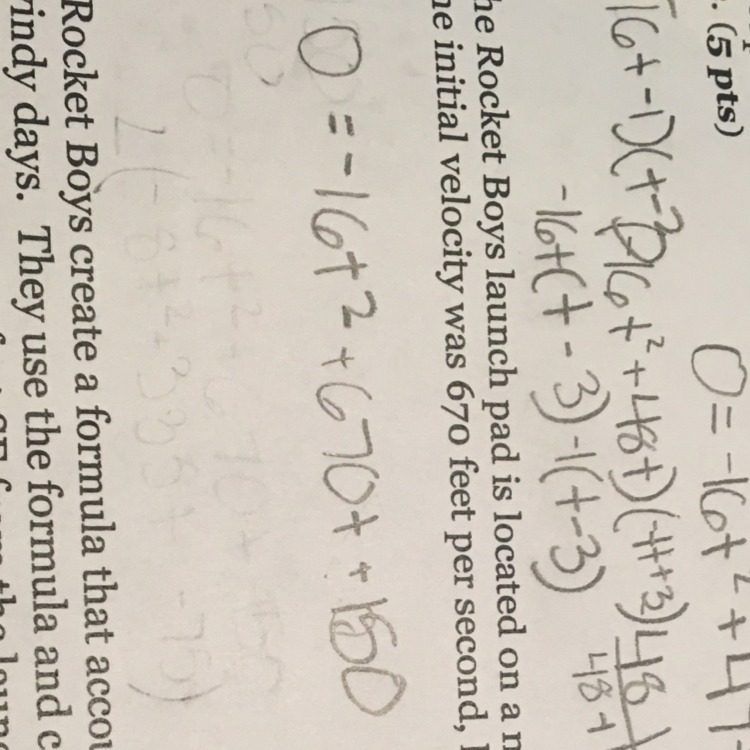 . (5 pts)
0 = -16t² + 4
16t - 1)(t - 3)
-16t² + 48t)(-1t + 3) 48
-16t(t - 3) -1(t - 3)
48t
he Rocket Boys launch pad is located on a
he initial velocity was 670 feet per second,
0 = -16t² + 670t + 150
0 = -16t² + 670t + 150
2(-8t² + 335t - 75)
Rocket Boys create a formula that accou
windy days. They use the formula and c